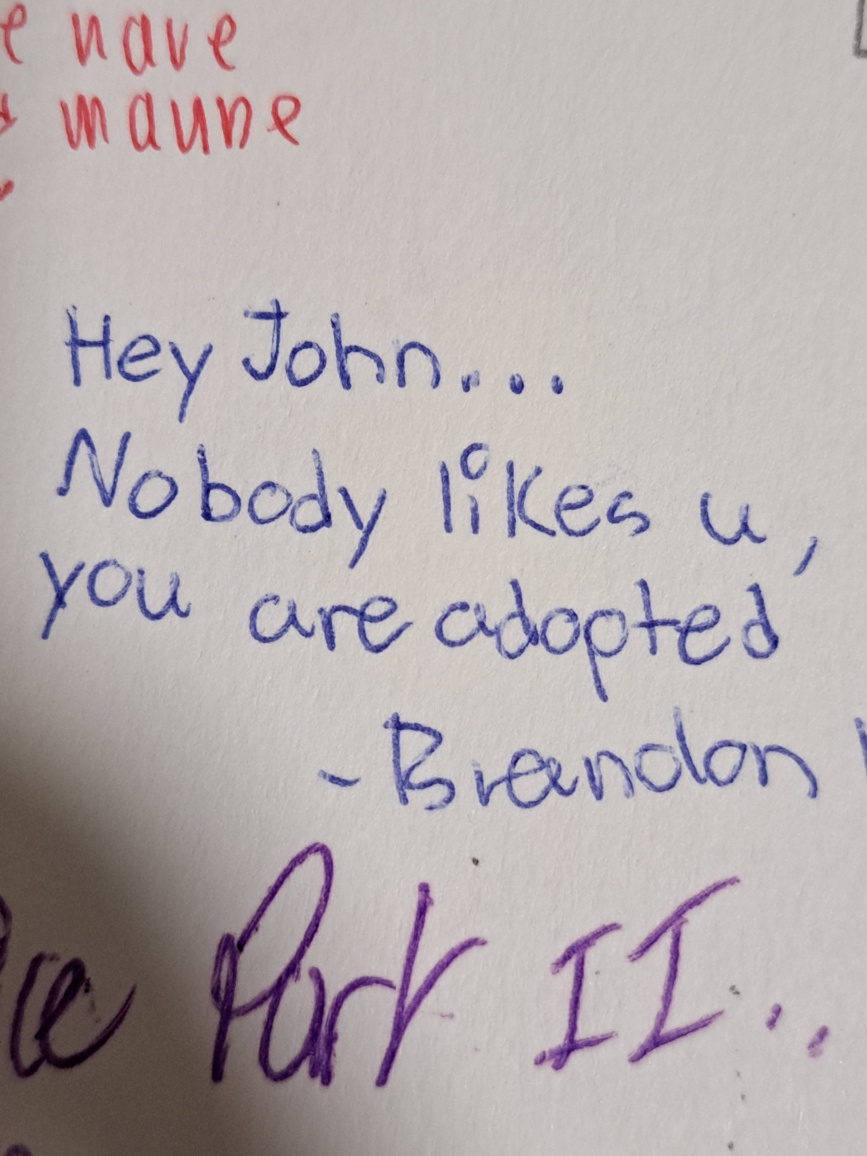 e have
maybe
Hey John...
Nobody likes u,
you are adopted
- Brandon
Part II..